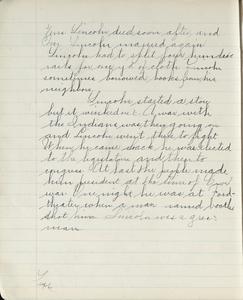 Lincoln died soon after and
Lincoln married again
Lincoln had to split four hundred
rails for every yd of cloth. Lincoln
sometimes borrowed books from his
neighbors.
Lincoln started a store
but it winked out. A war with
the Indians was then going on
and Lincoln went there to fight
When he came back he was elected
to the legislature and then to
congress. At last the people made
him president at the time of
war. One night he was at Ford
theater when a man named booth
shot him. Lincoln was a great
man